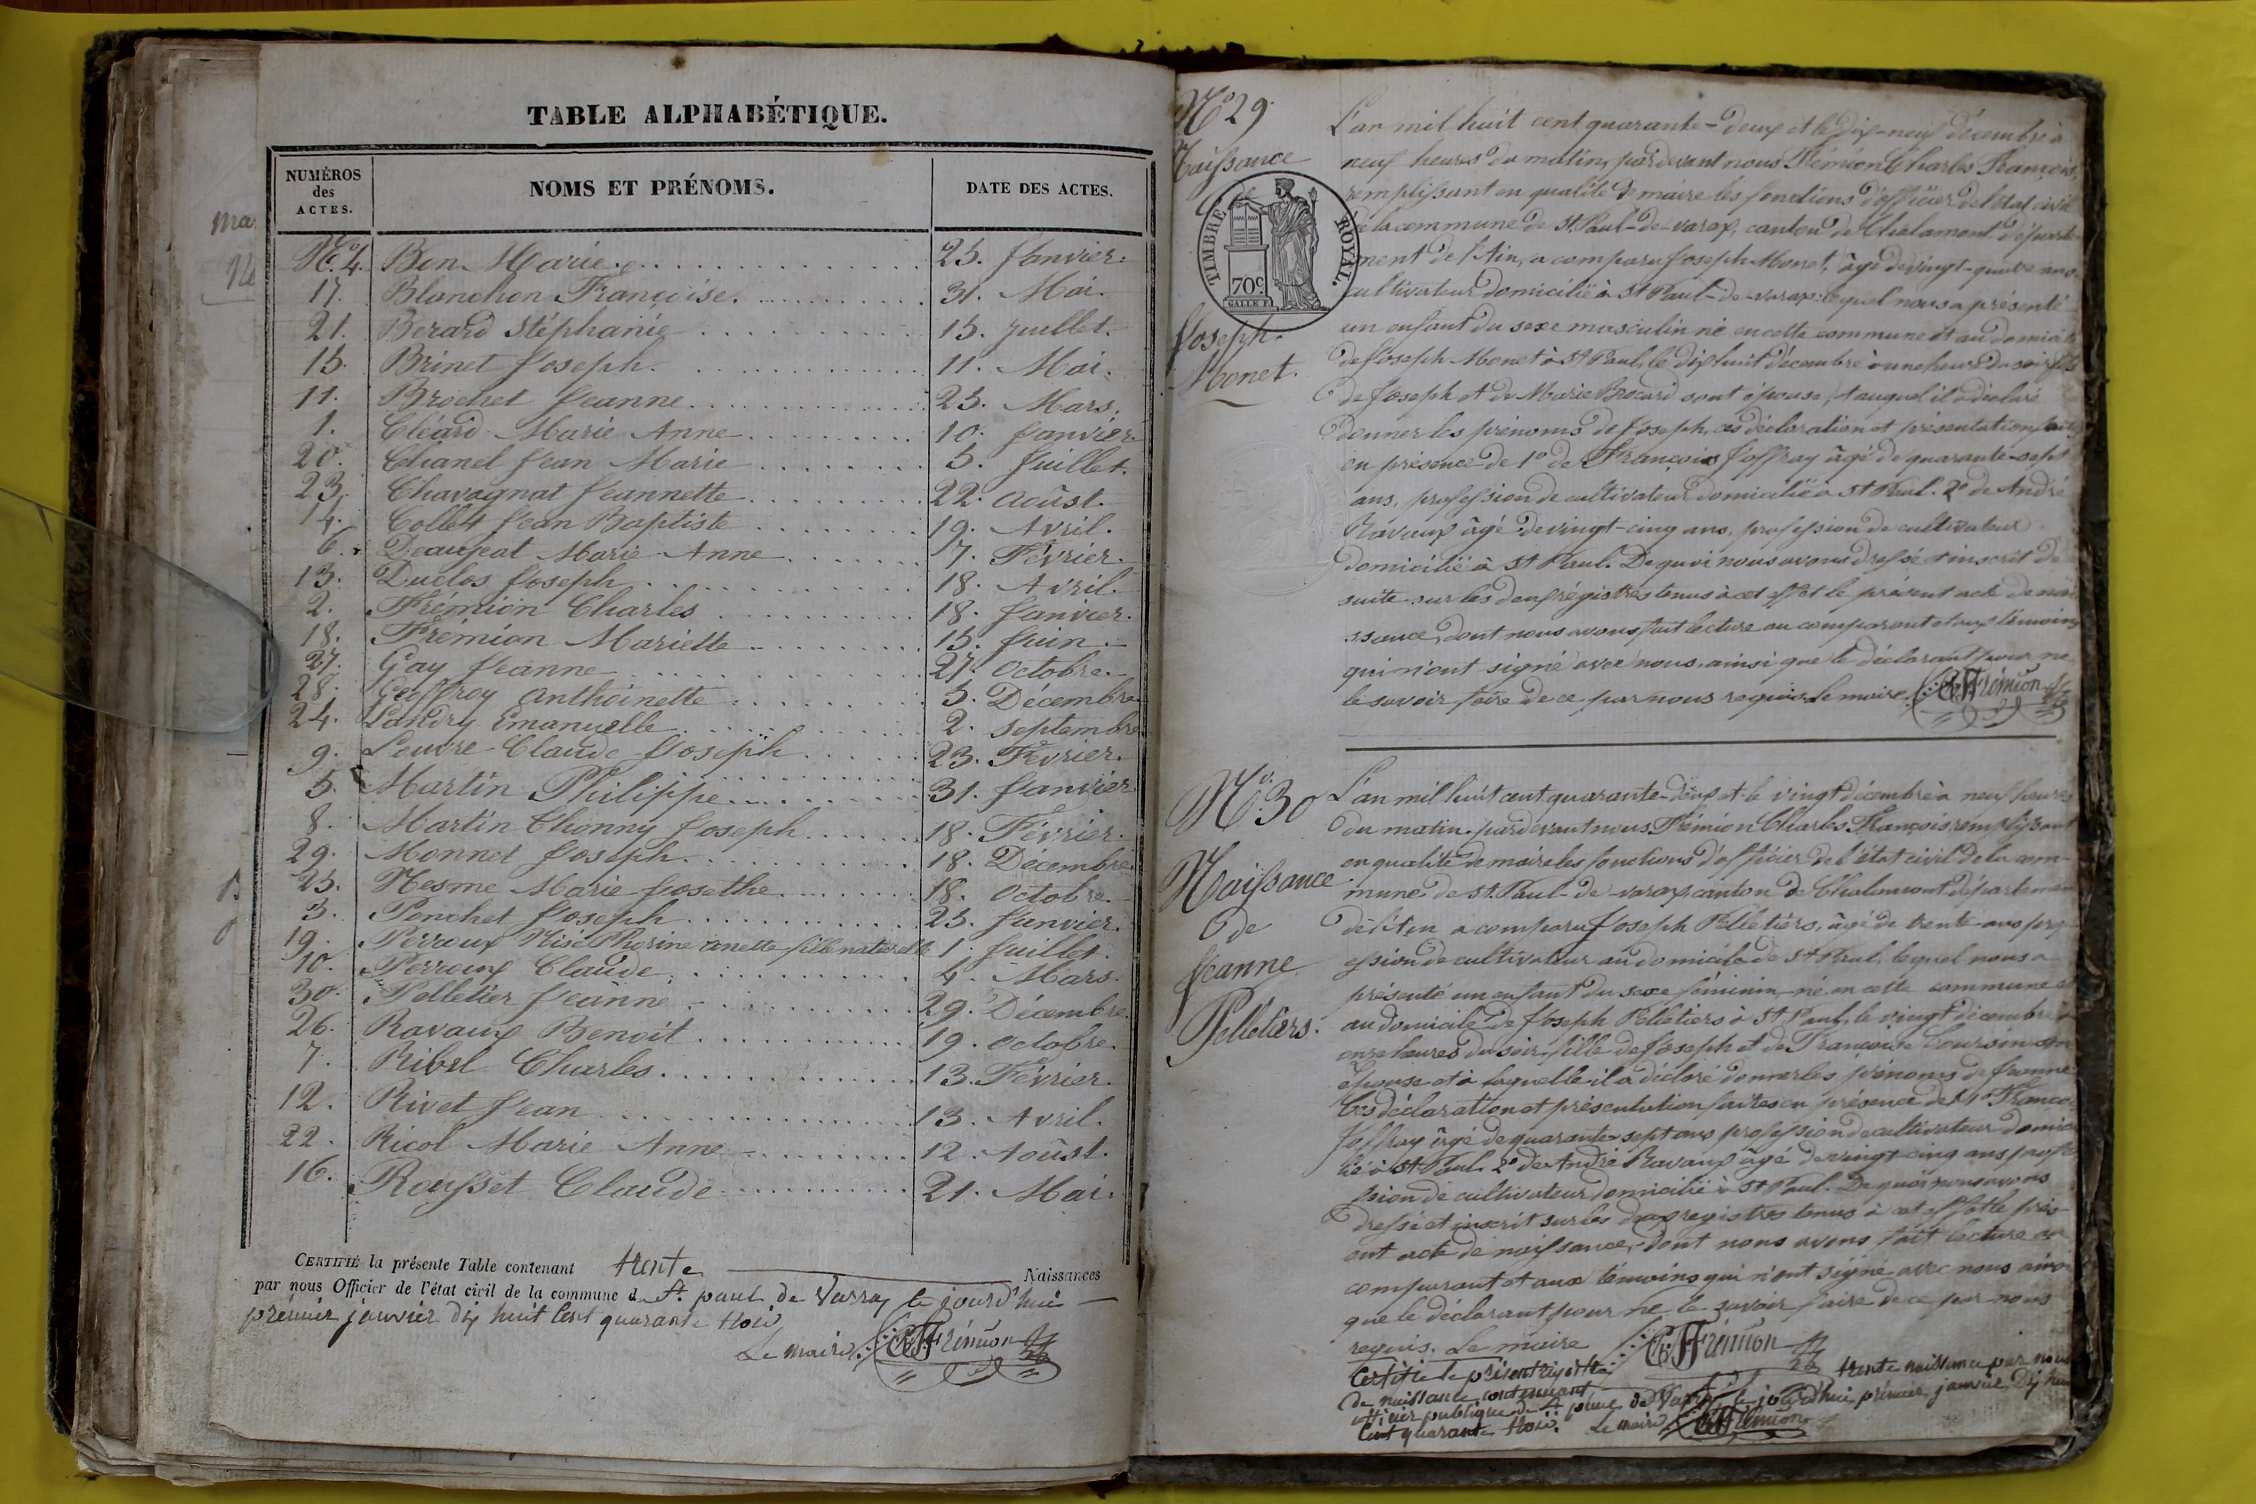 TABLE ALPHABÉTIQUE.
NUMÉROS des ACTES. NOMS ET PRÉNOMS. DATE DES ACTES.
N.º 4. Bon Marie 25. Janvier.
17. Blanchon Françoise. 31. Mai.
21. Berard Stéphanie 15. Juillet.
15. Brinet Joseph. 11. Mai.
11. Brochet Jeanne 25. Mars.
1. Cléard Marie Anne 10. Janvier.
20. Chanel Jean Marie 5. Juillet.
23. Chavagnat Jeannette 22. Août.
14. Collet Jean Baptiste 19. Avril.
6. Deaujeat Marie Anne 7. Février.
13. Duclos Joseph 18. Avril.
2. Frémion Charles 18. Janvier.
18. Frémion Mariette 15. Juin.
27. Gay Jeanne 27. Octobre.
28. Geoffroy Anthoinette 5. Décembre.
24. Landry Emanuelle 2. Septembre
9. Leuvre Claude Joseph 23. Février.
5. Martin Philippe 31. Janvier
8. Martin Thonny Joseph 18. Février.
29. Monnet Joseph. 18. Décembre.
25. Mesme Marie Josethe 18. Octobre.
3. Ponchet Joseph 25. Janvier.
19. Perroux Rosine anette fille naturelle 1. Juillet.
10. Perroux Claude 4. Mars.
30. Pelletier Jeanne 29. Décembre
26. Ravaux Benoit 19. Octobre.
7. Ribel Charles. 13. Février.
12. Rivet Jean 13. Avril.
22. Ricol Marie Anne 12. Août.
16. Raisset Claude 21. Mai.
CERTIFIÉ la présente Table contenant trente Naissances
par nous Officier de l'état civil de la commune d St. paul de Varax le jourd'hui
prémier janvier dix huit Cent quarante trois
Le maire Frémion
Nº 29.
Naissance
de
TIMBRE ROYAL.
70c
Joseph.
Monet.
L'an mil huit cent quarante-deux et le dix-neuf décembre à
neuf heures du matin, pardevant nous Frémion Charles François,
remplissant en qualité de maire les fonctions d'officier de l'état civil
de la commune de St. Paul-de-varax, canton de Chalamont départe-
ment de l'Ain, a comparu Joseph Monet, âgé de vingt-quatre ans
cultivateur domicilié à St Paul-de-varax lequel nous a présenté
un enfant du sexe masculin né en cette commune et au domicile
de Joseph Monet à St Paul, le dix huit décembre à une heure du soir fils
de Joseph et de Marie Brocard son épouse, et auquel il a déclaré
donner les prénoms de Joseph, ces déclaration et présentation faites
en présence de 1º de François Joffray âgé de quarante-sept
ans, profession de cultivateur domicilié à St Paul. 2º de André
Ravaux âgé de vingt-cinq ans, profession de cultivateur
domicilié à St Paul. De quoi nous avons dressé et inscrit de
suite sur les deux régistres tenus à cet effet le présent acte de nais-
ssance, dont nous avons fait lecture au comparant et aux témoins
qui n'ont signé avec nous ainsi que le déclarant pour ne
le savoir faire de ce par nous requis. Le maire Frémion
Nº 30
Naissance
de
Jeanne
Pelletiers.
L'an mil huit cent quarante-deux et le vingt décembre à neuf heures
du matin. pardevant nous Frémion Charles François remplissant
en qualité de maire les fonctions d'officier de l'état civil de la com-
mune de St. Paul-de-varax canton de Chalamont département
de l'Ain a comparu Joseph Pelletiers, âgé de trente ans prof-
ession de cultivateur au domicile de St Paul, lequel nous a
présenté un enfant du sexe féminin, né en cette commune et
au domicile de Joseph Pelletiers à St Paul, le vingt décembre à
onze heures du soir, fille de Joseph et de Françoise son
épouse et à laquelle il a déclaré donner les prénoms de Jeanne
Ces déclaration et présentation faites en présence de 1º François
Joffray âgé de quarante-sept ans profession de cultivateur domici-
lié à St Paul. 2º de André Ravaux âgé de vingt-cinq ans profes-
ssion de cultivateur domicilié à St Paul. De quoi nous avons
dressé et inscrit sur les deux registres tenus à cet effet le prés-
ent acte de naissance, dont nous avons fait lecture au
comparant et aux témoins qui n'ont signé avec nous ainsi
que le déclarant pour ne le savoir faire de ce par nous
requis. Le maire Frémion
Certifié le présent registre
de naissance contenant trente naissance par nous
officier publique de St paul de Varax le jourd'hui prémier janvier dix huit
Cent quarante trois. Le maire Frémion